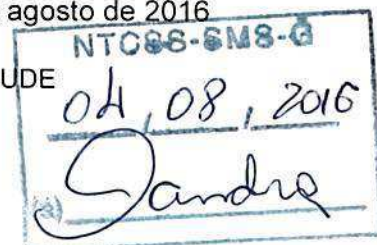 agosto de 2016
NTCSS-SMS-G
UDE
04, 08, 2016
Sandra